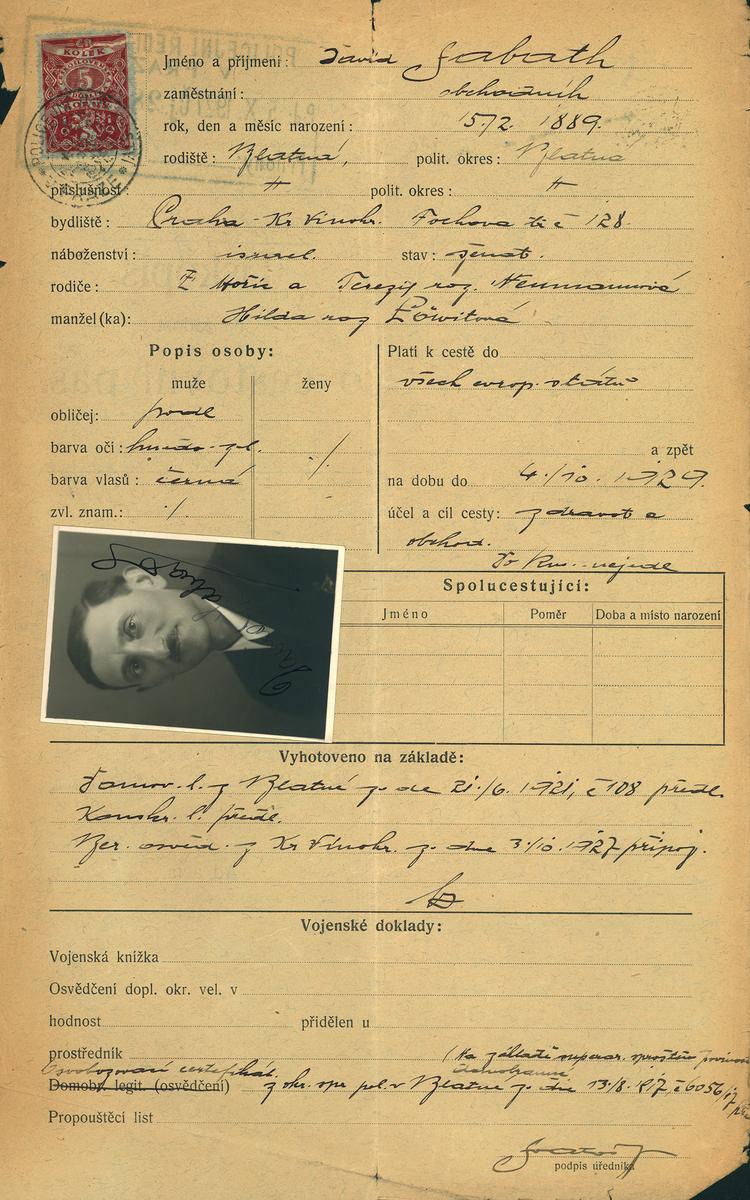 KOLEK
5
Jméno a příjmení: David Sabath
zaměstnání: obchodník
rok, den a měsíc narození: 15/2. 1889.
rodiště: Blatná, polit. okres: Blatna
příslušnost: " polit. okres: "
bydliště: Praha - Kr Vinohr. Fochova tř č 128.
náboženství: israel. stav: ženat.
rodiče: Mořic a Terezie roz. Neumannová
manžel (ka): Hilda roz Löwitová
Popis osoby:
muže ženy
obličej: podl
barva očí: hnědo-
barva vlasů: černá
zvl. znam.: /.
Platí k cestě do
všech evrop. států
a zpět
na dobu do 4./10. 1929.
účel a cíl cesty: zdravot a
obchod.
Do Rus. nejede
Spolucestující:
Jméno Poměr Doba a místo narození
Vyhotoveno na základě:
Domov. l. z Blatné ze dne 21./6. 1921, č 108 předl.
Konskr. l. předl.
Ber. osvěd. z Kr Vinohr. ze dne 3/10. 1927 připoj.
Vojenské doklady:
Vojenská knížka
Osvědčení dopl. okr. vel. v
hodnost přidělen u
prostředník (Na základě superar.
domobranné
Osvobozovací certifikát.
Domobr. legit. (osvědčení) z okr. spr pol. v Blatné ze dne 13/8. 917, č 6056/17
Propouštěcí list
podpis úředníka